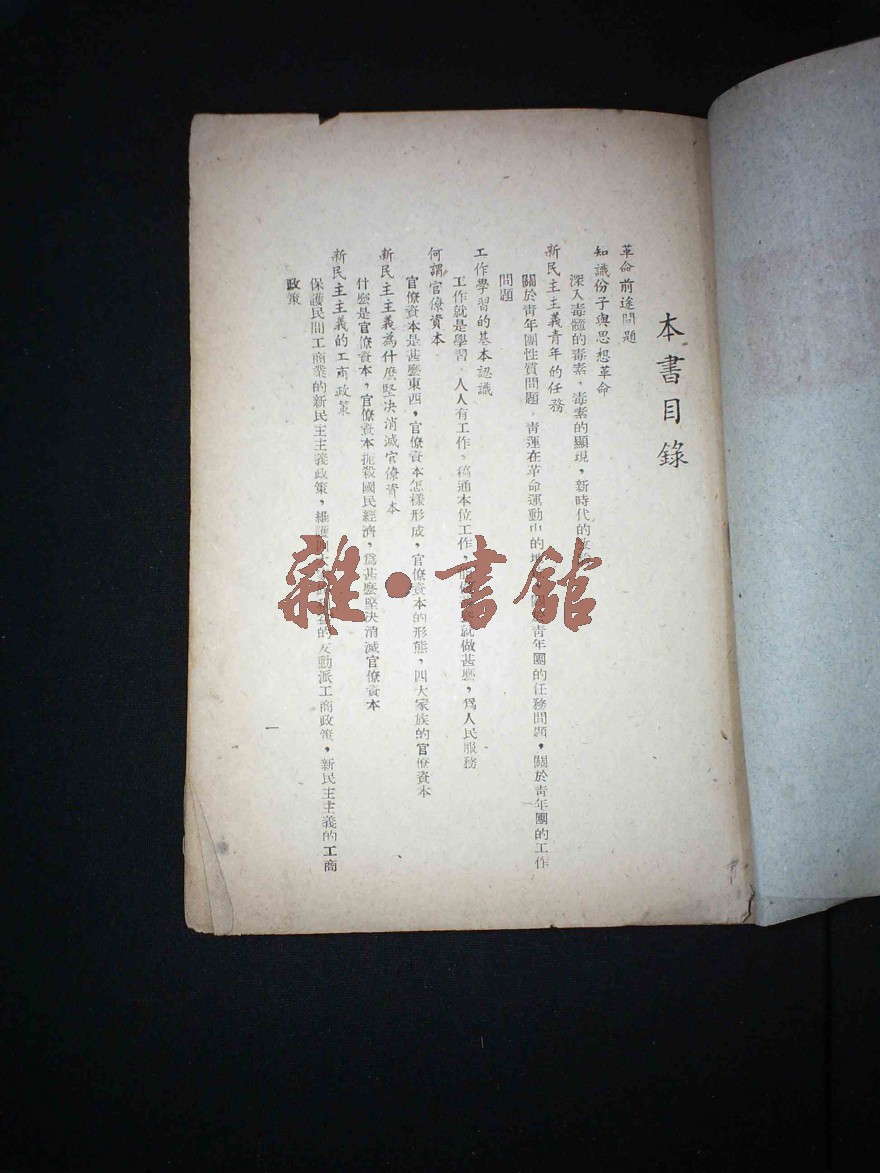 本書目錄
革命前途問題
知識份子與思想革命
深入毒髓的毒素，毒素的顯現，新時代的
新民主主義青年的任務
關於青年團性質問題，青運在革命運動中的 青年團的任務問題，關於青年團的工作
問題
工作學習的基本認識
工作就是學習，人人有工作，搞通本位工作， 就做甚麽，爲人民服務
何謂官僚資本
官僚資本是甚麽東西，官僚資本怎樣形成，官僚資本的形態，四大家族的官僚資本
新民主主義為什麽堅决消滅官僚資本
什麽是官僚資本，官僚資本扼殺國民經濟，爲甚麽堅决消滅官僚資本
新民主主義的工商政策
保護民間工商業的新民主主義政策， 的反動派工商政策，新民主主義的工商
政策
一
雜·書館